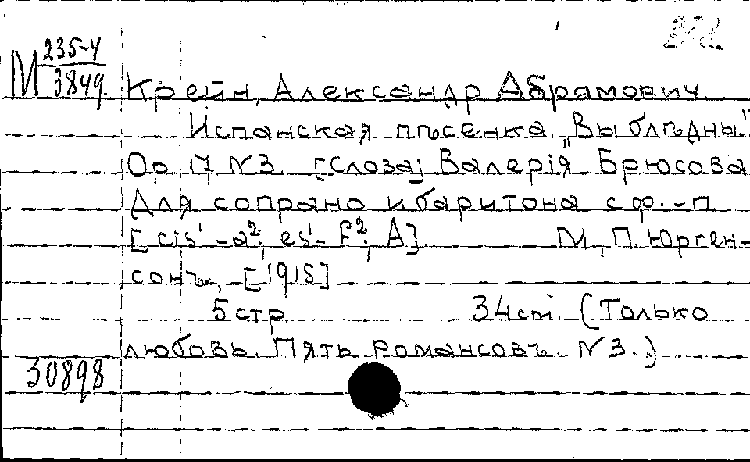 235-4
М 3849
Крейн, Александр Абрамович
Испанская пѣсенка „Вы блѣдны"
Op 7 N3. [Слова] Валерія Брюсова
Для сопрано и баритона с ф.-п
[cis¹-a²; es¹-f²; A] М., П. Юрген-
сонъ, [1915]
5 стр 34 cm. (Только
любовь. Пять романсовъ. N3.)
30898